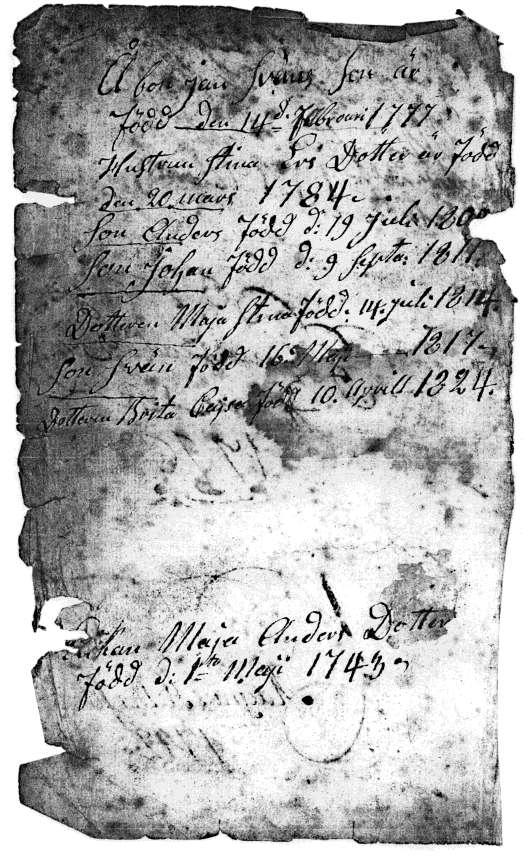 Åbon jan Sväns Son är
född den 14d. Februari 1777
Hustrun Stina Ers Dotter är född
den 20 mars 1784
Son Anders född d: 19 Juli 180
Son Johan född d: 9 Septa: 1811.
Dotteren Maja Stina född: 14. juli 1814.
Son Svän född 16 Maji 1817
Dotteren Brita Cajsa född 10. Aprill 1824.
Maja Anders Dotter
född d: 1to Maji 1743